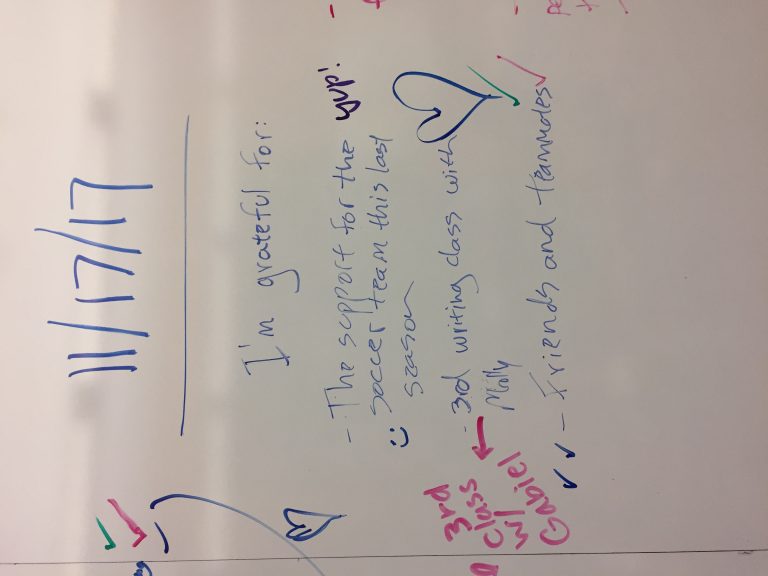 11/17/17
I'm grateful for:
- The support for the yup!
soccer team this last
season
- 3rd writing class with
Molly
- Friends and teammates
3rd
class
w/
Gabiel